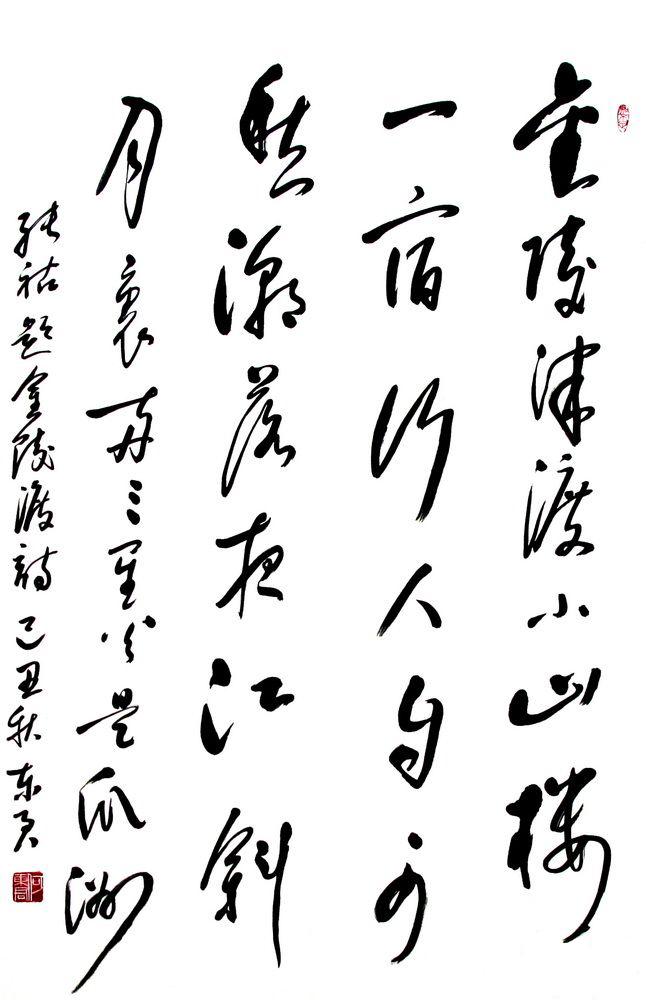 金陵津渡小山楼
一宿行人自可
愁潮落夜江斜
月裏两三星火是瓜洲
张祜题金陵渡詩 己丑秋 东君